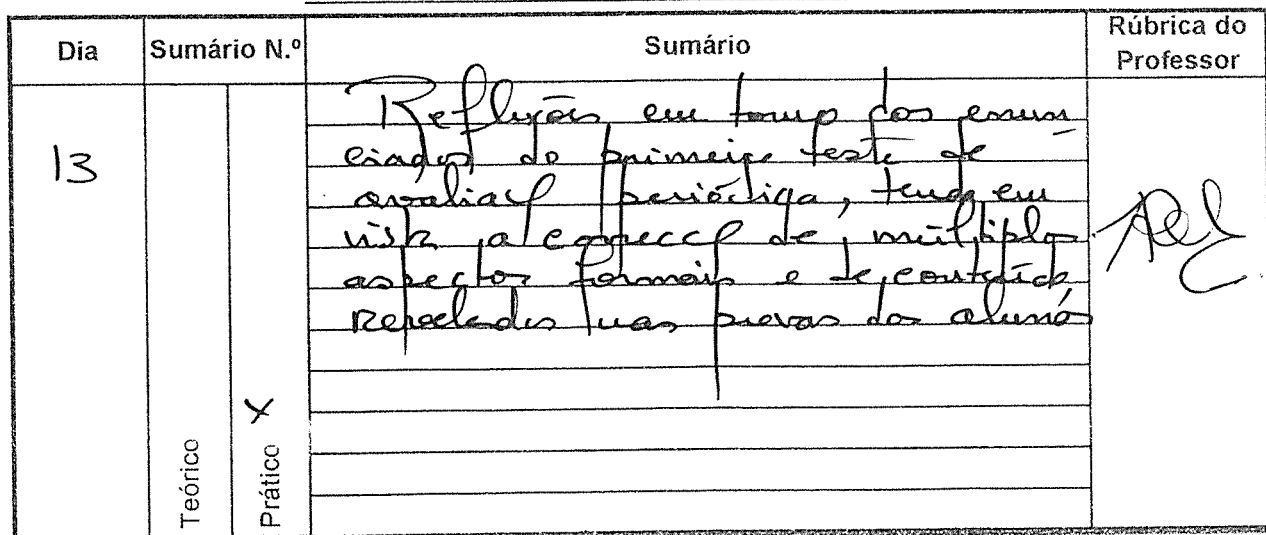 Dia
Sumário N.º
Sumário
Rúbrica do
Professor
13
Reflexões em torno dos enun
ciados do primeiro teste de
avaliaç periódica, tendo em
vista a correcç de múltiplos
aspectos formais e de conteúdo
Revelados nas provas dos alunos
Teórico
Prático X